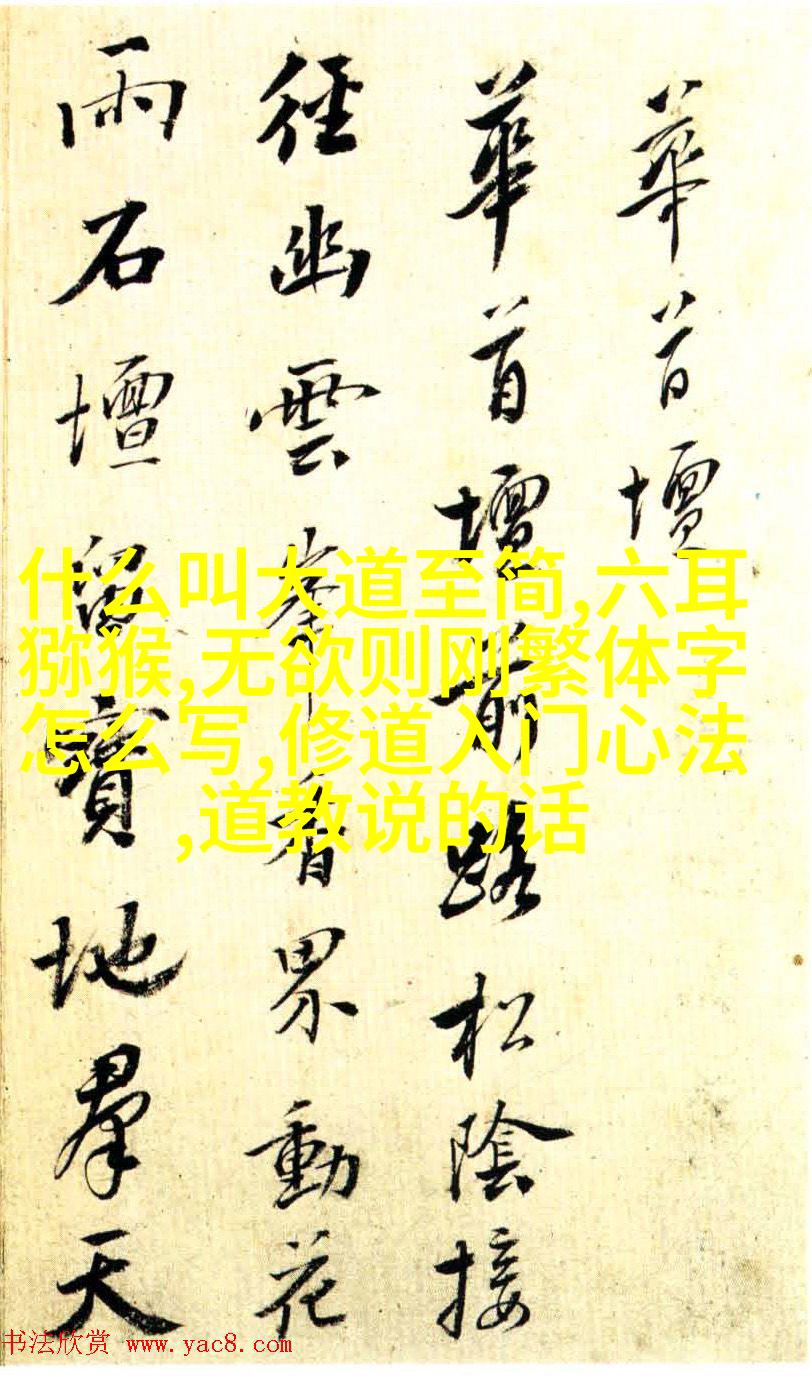 華首壇
華首壇前路松陰接
徑幽雲峯香界動花
雨石壇留寶地羣天
什么叫大道至简,六耳
猕猴,无欲则刚繁体字
怎么写,修道入门心法
,道教说的话
书法欣赏 www.yac8.com